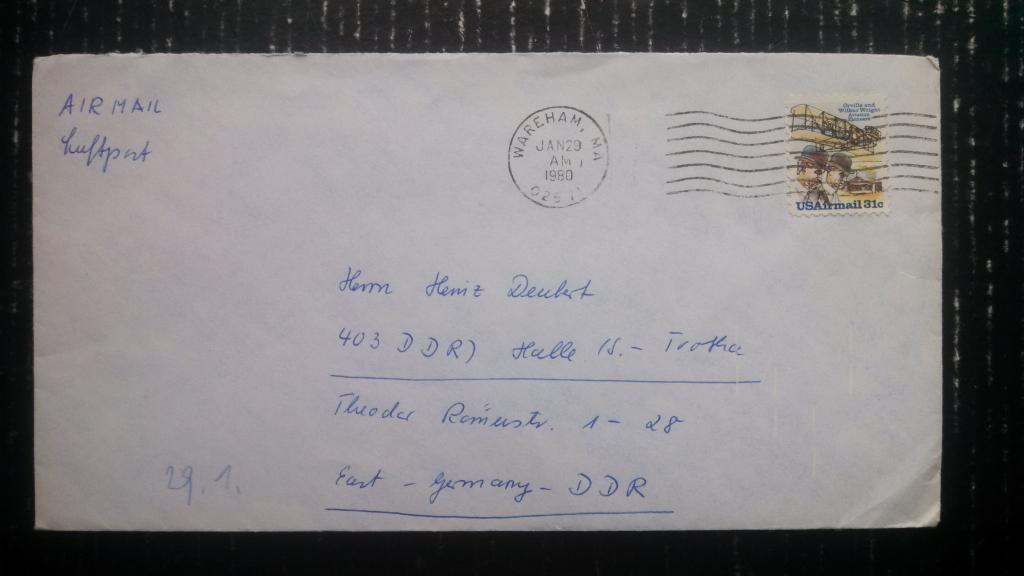 AIR MAIL
Luftpost
WAREHAM, MA
JAN 29
AM
1980
02571
Orville and
Wilbur Wright
Aviation
Pioneers
USAirmail 31c
Herrn Heinz
403 DDR) Halle /S. - Trotha
Theodor Römerstr. 1 - 28
East - Germany - DDR
29.1.